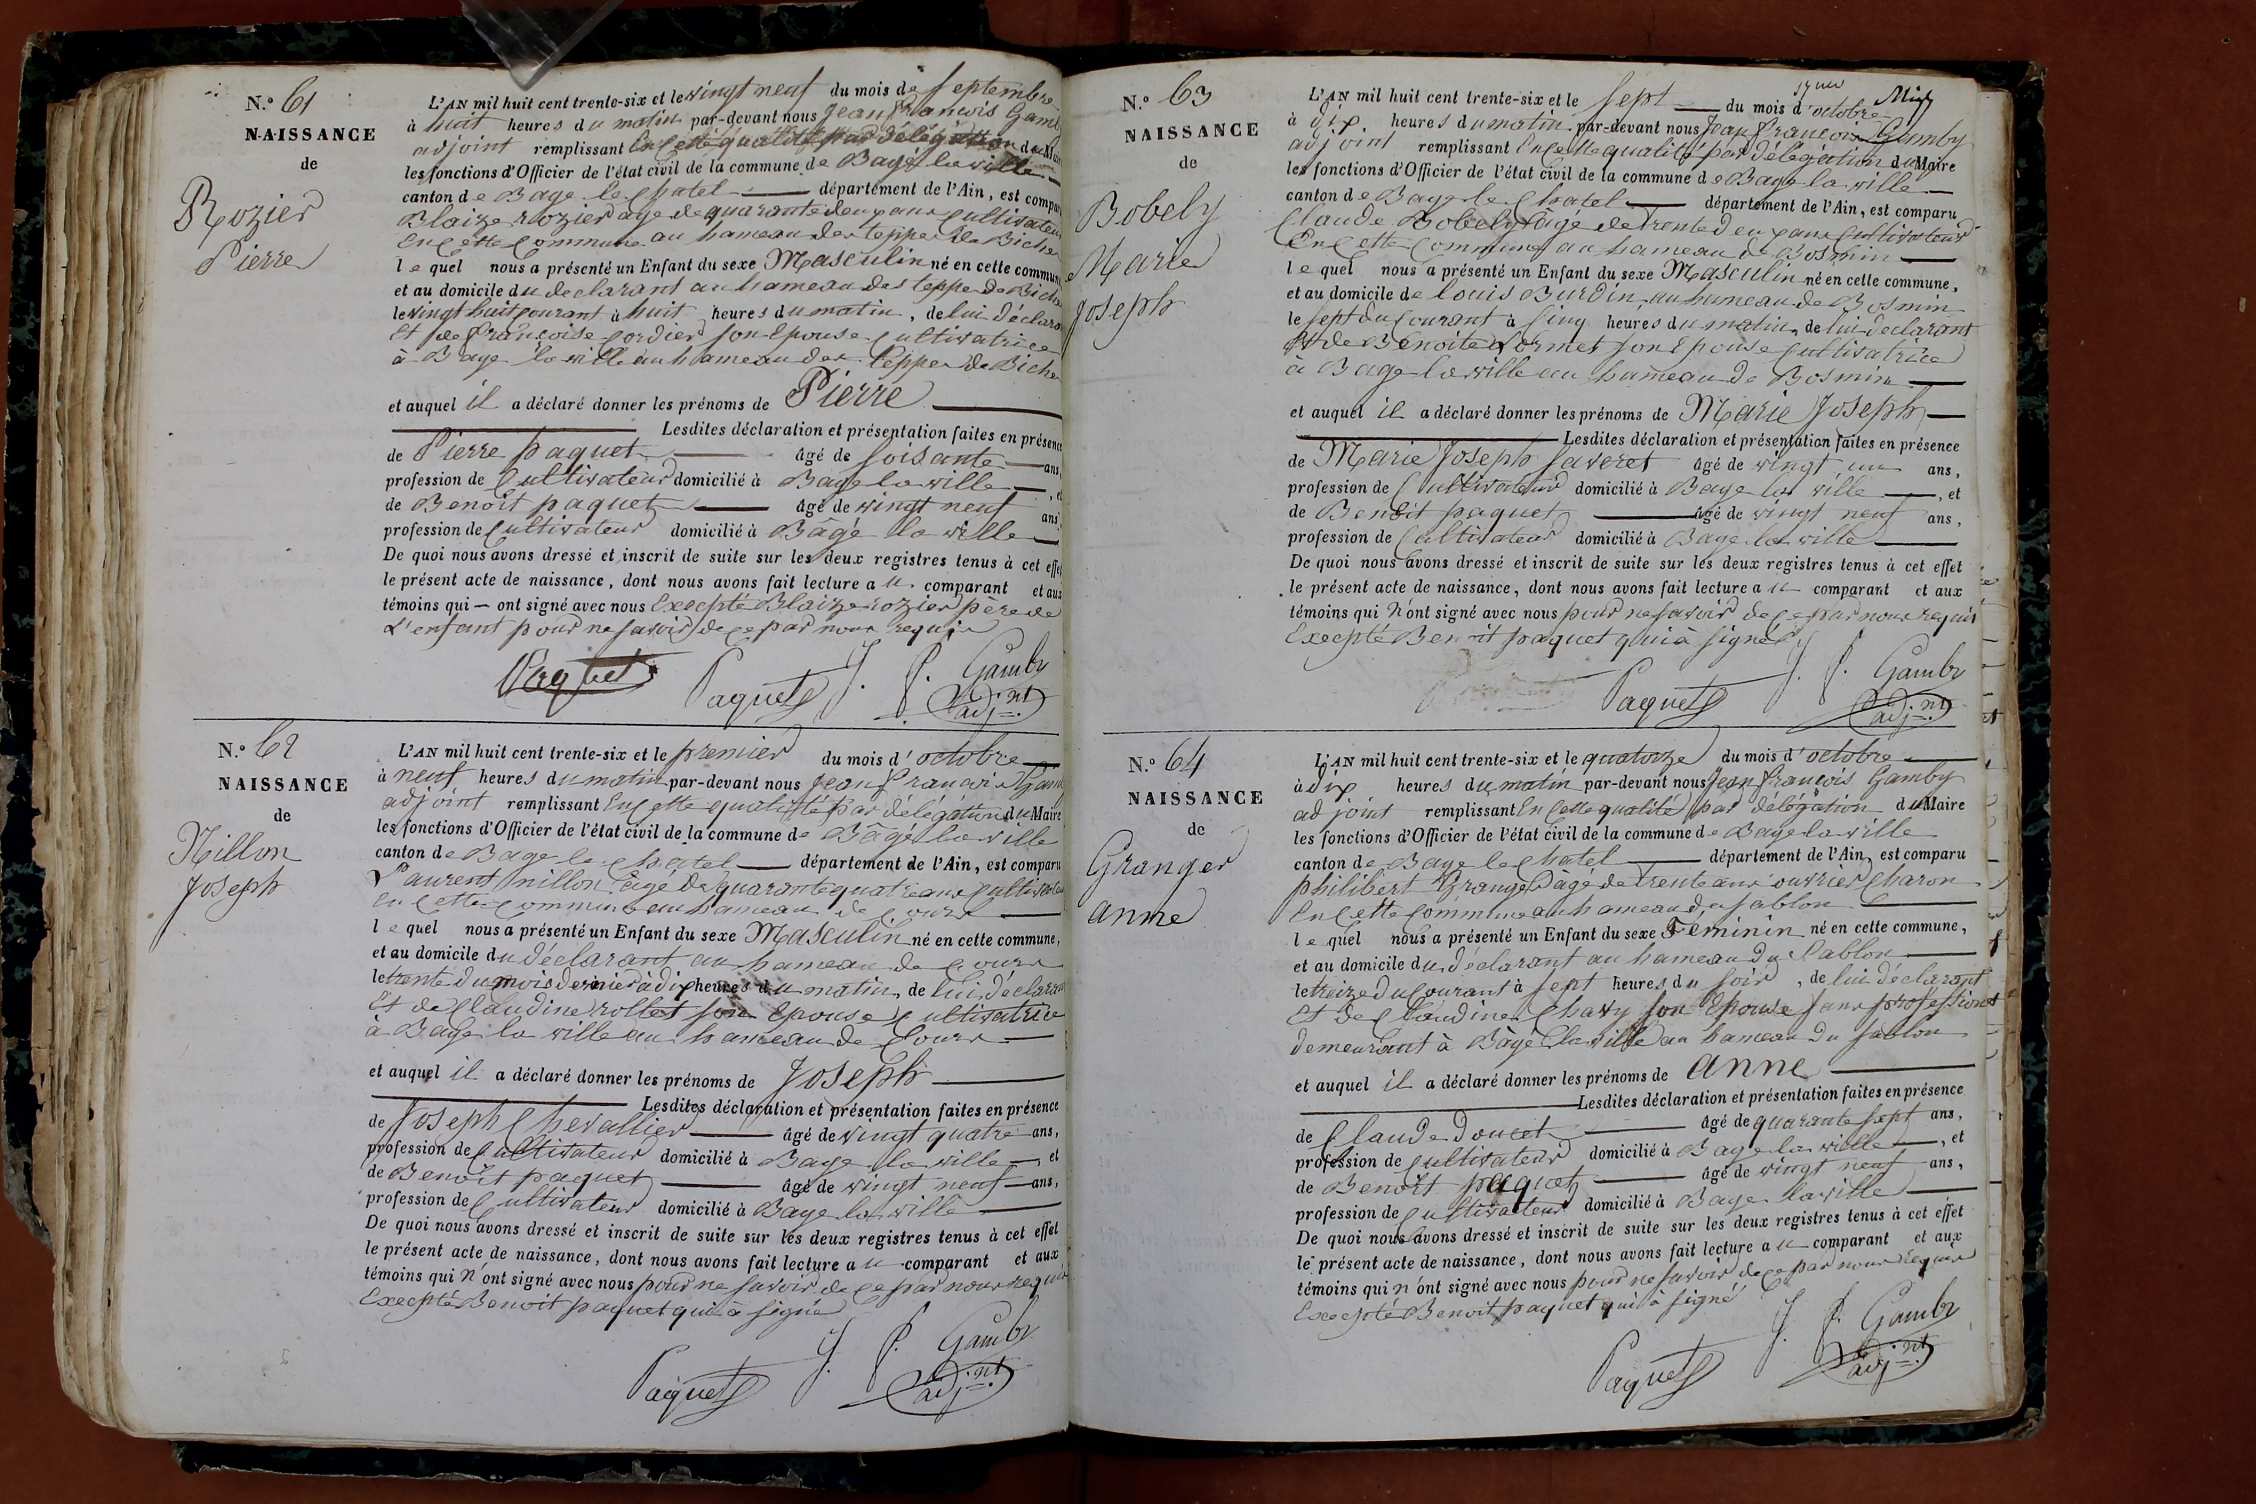 N.° 61
NAISSANCE
de
Rozier
Pierre
L'AN mil huit cent trente-six et le vingt neuf du mois de septembre
à huit heures du matin par-devant nous Jean François Gamb
adjoint remplissant en cette qualité par délégation du Mai
les fonctions d'Officier de l'état civil de la commune de Bagé la ville
canton de Bage le Chatel département de l'Ain, est compar
Blaize rozier agé de quarante deux ans Cultivateur
en cette Commune au hameau des teppes de Biche
lequel nous a présenté un Enfant du sexe Masculin né en cette commun
et au domicile du declarant au hameau des teppe de Biche
le vingt huit courant à huit heures du matin, de lui déclara
et de françoise Cordier son Epouse Cultivatrice
à Bage la ville au hameau des teppes de Biche
et auquel il a déclaré donner les prénoms de Pierre
Lesdites déclaration et présentation faites en présence
de Pierre paquet âgé de soisante ans,
profession de Cultivateur domicilié à Bage la ville, et
de Benoit paquet âgé de vingt neuf ans,
profession de Cultivateur domicilié à Bâgé la ville
De quoi nous avons dressé et inscrit de suite sur les deux registres tenus à cet effet
le présent acte de naissance, dont nous avons fait lecture au comparant et aux
témoins qui ont signé avec nous Excepté Blaize rozier père de
L'enfant pour ne savoir de ce par nous requis
Paquet Paquet J. f. Gamby
adj.nt
N.° 62
NAISSANCE
de
Nillon
Joseph
L'AN mil huit cent trente-six et le premier du mois d'octobre
à neuf heures du matin par-devant nous Jean François Gam
adjoint remplissant en cette qualité par délégation du Maire
les fonctions d'Officier de l'état civil de la commune de Bâgé la ville
canton de Bage le Chatel département de l'Ain, est comparu
Laurent nillon âgé de quarante quatre ans Cultivateu
en cette Commune au hameau de Cours
lequel nous a présenté un Enfant du sexe Masculin né en cette commune,
et au domicile du déclarant au hameau de Cours
le trente du mois dernier à dix heures du matin, de lui déclara
et de Claudine rollet son Epouse Cultivatrice
à Bage la ville au hameau de Cours
et auquel il a déclaré donner les prénoms de Joseph
Lesdites déclaration et présentation faites en présence
de Joseph Chevallier âgé de vingt quatre ans,
profession de Cultivateur domicilié à Bage la ville, et
de Benoit paquet âgé de vingt neuf ans,
profession de Cultivateur domicilié à Bage la ville
De quoi nous avons dressé et inscrit de suite sur les deux registres tenus à cet effet
le présent acte de naissance, dont nous avons fait lecture au comparant et aux
témoins qui n'ont signé avec nous pour ne savoir de ce par nous requis
Excepté Benoit paquet qui à signé
Paquet J. f. Gamby
adj.nt
N.° 63
NAISSANCE
de
Bobely
Marie
Joseph
L'AN mil huit cent trente-six et le sept du mois d'octobre
à dix heures du matin par-devant nous Jean françois Gamby
adjoint remplissant en cette qualité par délégation du Maire
les fonctions d'Officier de l'état civil de la commune de Bage la ville
canton de Bage le Chatel département de l'Ain, est comparu
Claude Bobely âgé de trente deux ans Cultivateur
en cette Commune au hameau de Bosmin
lequel nous a présenté un Enfant du sexe Masculin né en cette commune,
et au domicile de louis Burdin au hameau de Bosmin
le sept du courant à cinq heures du matin, de lui declarant
et de Benoite Lormet son Epouse Cultivatrice
à Bage la ville au hameau de Bosmin
et auquel il a déclaré donner les prénoms de Marie Joseph
Lesdites déclaration et présentation faites en présence
de Marie Joseph saveret âgé de vingt un ans,
profession de Cultivateur domicilié à Bage la ville, et
de Benoit paquet âgé de vingt neuf ans,
profession de Cultivateur domicilié à Bage la ville
De quoi nous avons dressé et inscrit de suite sur les deux registres tenus à cet effet
le présent acte de naissance, dont nous avons fait lecture au comparant et aux
témoins qui n'ont signé avec nous pour ne savoir de ce par nous requis
Excepté Benoit paquet qui à signé
Paquet J. f. Gamby
adj.nt
N.° 64
NAISSANCE
de
Granger
anne
L'AN mil huit cent trente-six et le quatorze du mois d'octobre
à dix heures du matin par-devant nous Jean françois Gamby
adjoint remplissant en cette qualité par délégation du Maire
les fonctions d'Officier de l'état civil de la commune de Bage la ville
canton de Bage le Chatel département de l'Ain, est comparu
philibert Granger âgé de trente ans ouvrier charon
en cette Commune au hameau du sablon
lequel nous a présenté un Enfant du sexe Feminin né en cette commune,
et au domicile du déclarant au hameau du Sablon
le treize du courant à sept heures du soir, de lui déclarant
et de Claudine Chavy son Epouse sans profession
demeurant à Bâgé la ville au hameau du sablon
et auquel il a déclaré donner les prénoms de anne
Lesdites déclaration et présentation faites en présence
de Claude doucet âgé de quarante sept ans,
profession de Cultivateur domicilié à Bage la ville, et
de Benoit paquet âgé de vingt neuf ans,
profession de Cultivateur domicilié à Bage la ville
De quoi nous avons dressé et inscrit de suite sur les deux registres tenus à cet effet
le présent acte de naissance, dont nous avons fait lecture au comparant et aux
témoins qui n'ont signé avec nous pour ne savoir de ce par nous requis
Excepté Benoit paquet qui à signé
Paquet J. f. Gamby
adj.nt